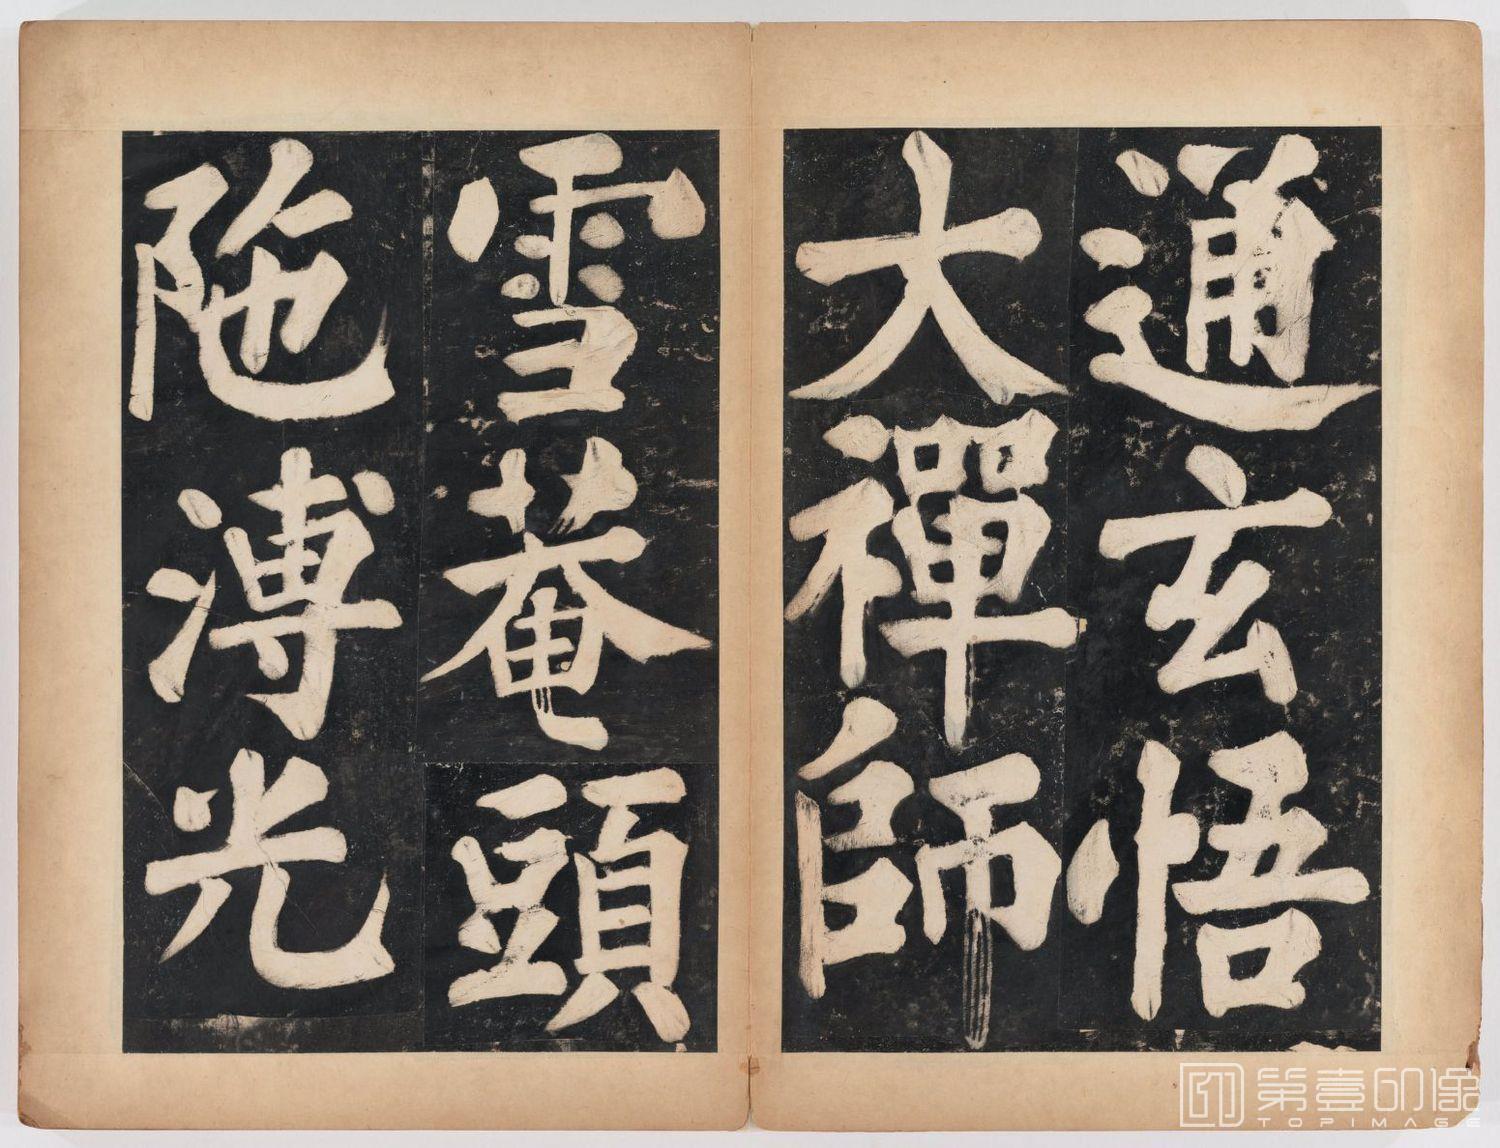 通玄悟
大禪師
雪菴頭
陁溥光
第壹印像
TOPIMAGE